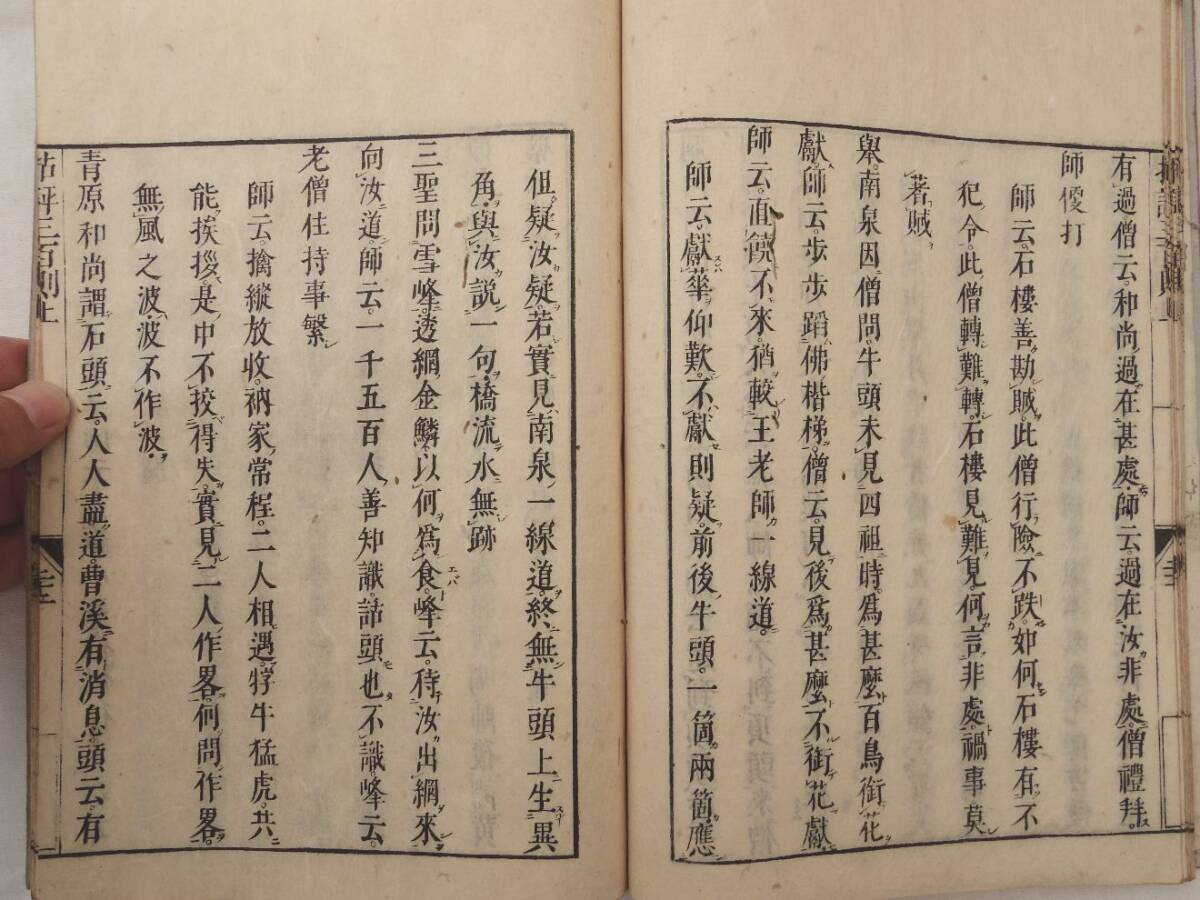 有過僧云和尚過在甚處師云過在汝非處僧禮拜
師便打
師云石樓善勘賊此僧行險不跌如何石樓有不
犯令此僧轉難轉石樓見難見何言非處禍事莫
著賊
舉南泉因僧問牛頭未見四祖時爲甚麼百鳥銜花
獻師云步步蹈佛楷梯僧云見後爲甚麼不銜花獻
師云直饒不來猶較王老師一線道
師云獻華仰歎不獻則疑前後牛頭一箇兩箇應
但疑汝疑若實見南泉一線道終無牛頭上生異
角與汝說一句橋流水無跡
三聖問雪峰透網金鱗以何爲食峰云待汝出網來
向汝道師云一千五百人善知識話頭也不識峰云
老僧住持事繁
師云擒縱放收衲家常程二人相遇牸牛猛虎共
能挨拶是中不挍得失實見二人作畧何問作畧
無風之波波不作波
青原和尚謂石頭云人人盡道曹溪有消息頭云有